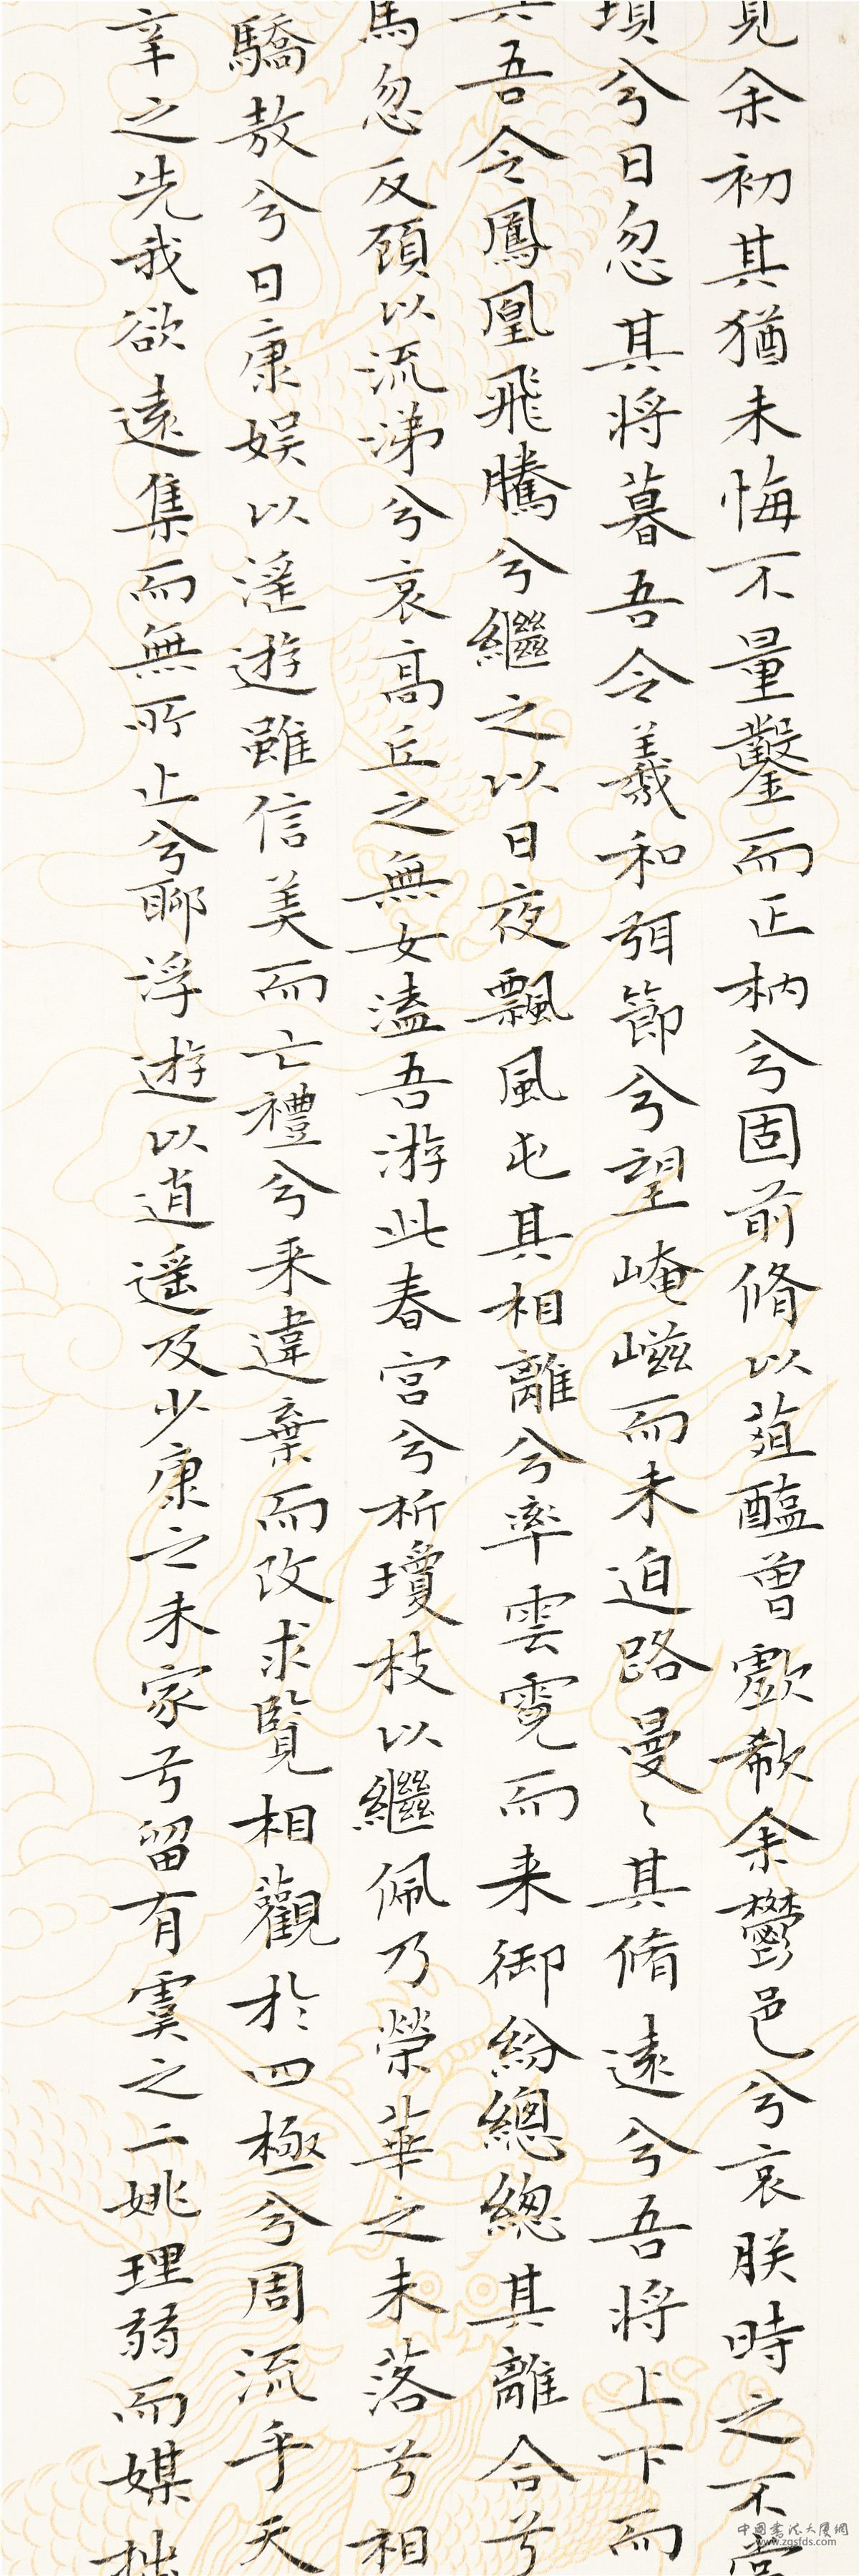 覽余初其猶未悔不量鑿而正枘兮固前脩以葅醢曾歔欷余鬱邑兮哀朕時之不當
瑣兮日忽其將暮吾令羲和弭節兮望崦嵫而未迫路曼〻其脩遠兮吾將上下而
具吾令鳳凰飛騰兮繼之以日夜飄風屯其相離兮率雲霓而来御紛總總其離合兮
馬忽反顧以流涕兮哀高丘之無女溘吾游此春宮兮折瓊枝以繼佩乃榮華之未落兮相
驕敖兮日康娱以淫遊雖信美而亡禮兮来違棄而改求覽相觀於四極兮周流乎天
辛之先我欲遠集而無所止兮聊浮遊以逍遥及少康之未家兮留有虞之二姚理弱而媒拙
中国书法大厦網
www.zgsfds.com